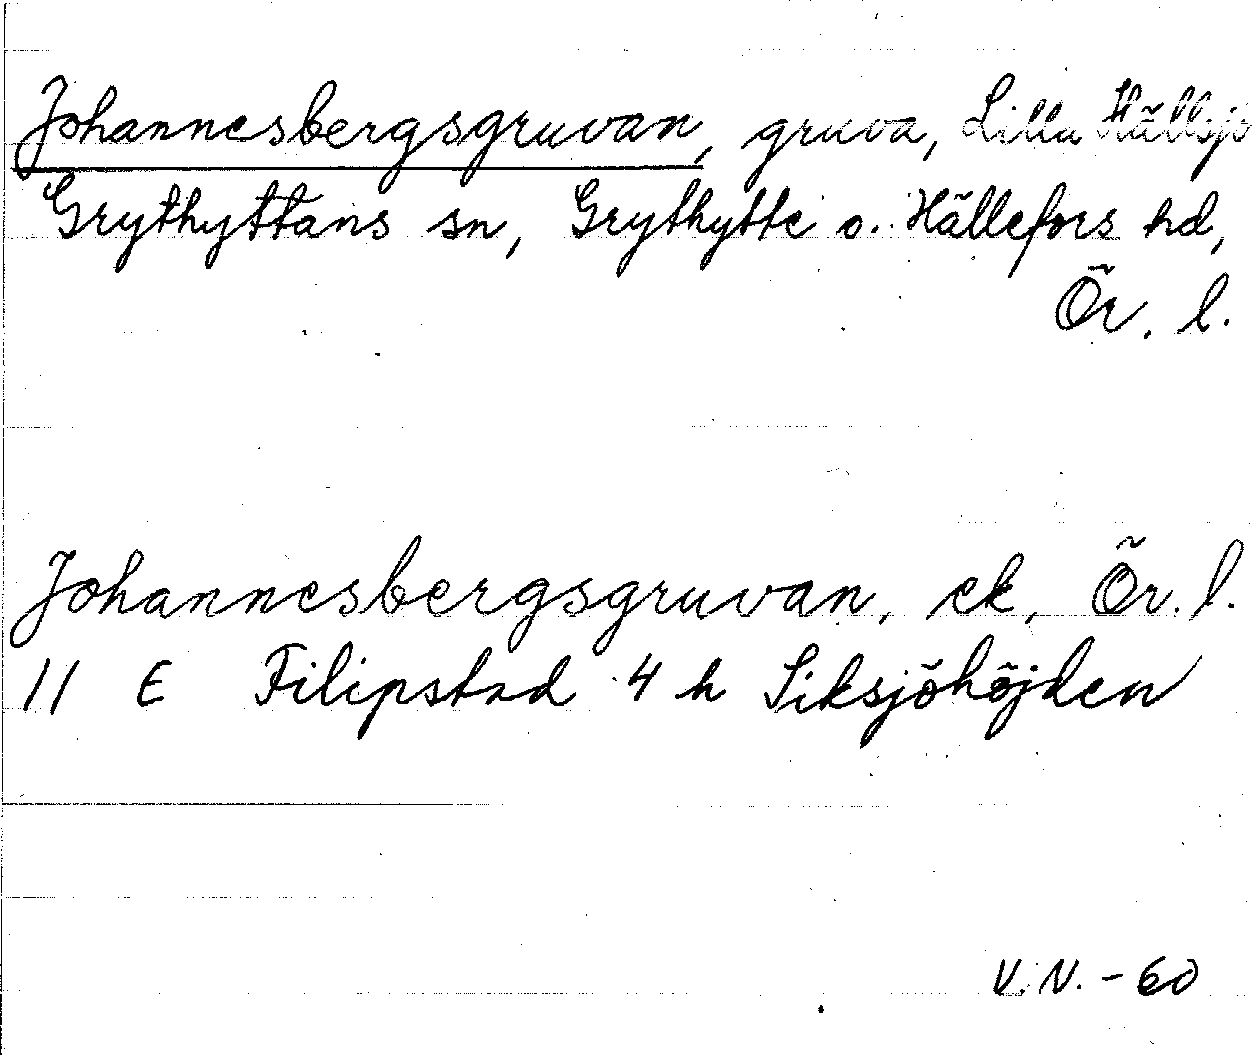 Johannesbergsgruvan, gruva, Lilla Hällsjö
Grythyttans sn, Grythytte o. Hällefors hd,
Ör. l.
Johannesbergsgruvan, ek, Ör. l.
11 E Filipstad 4 h Siksjöhöjden
V.N. - 60